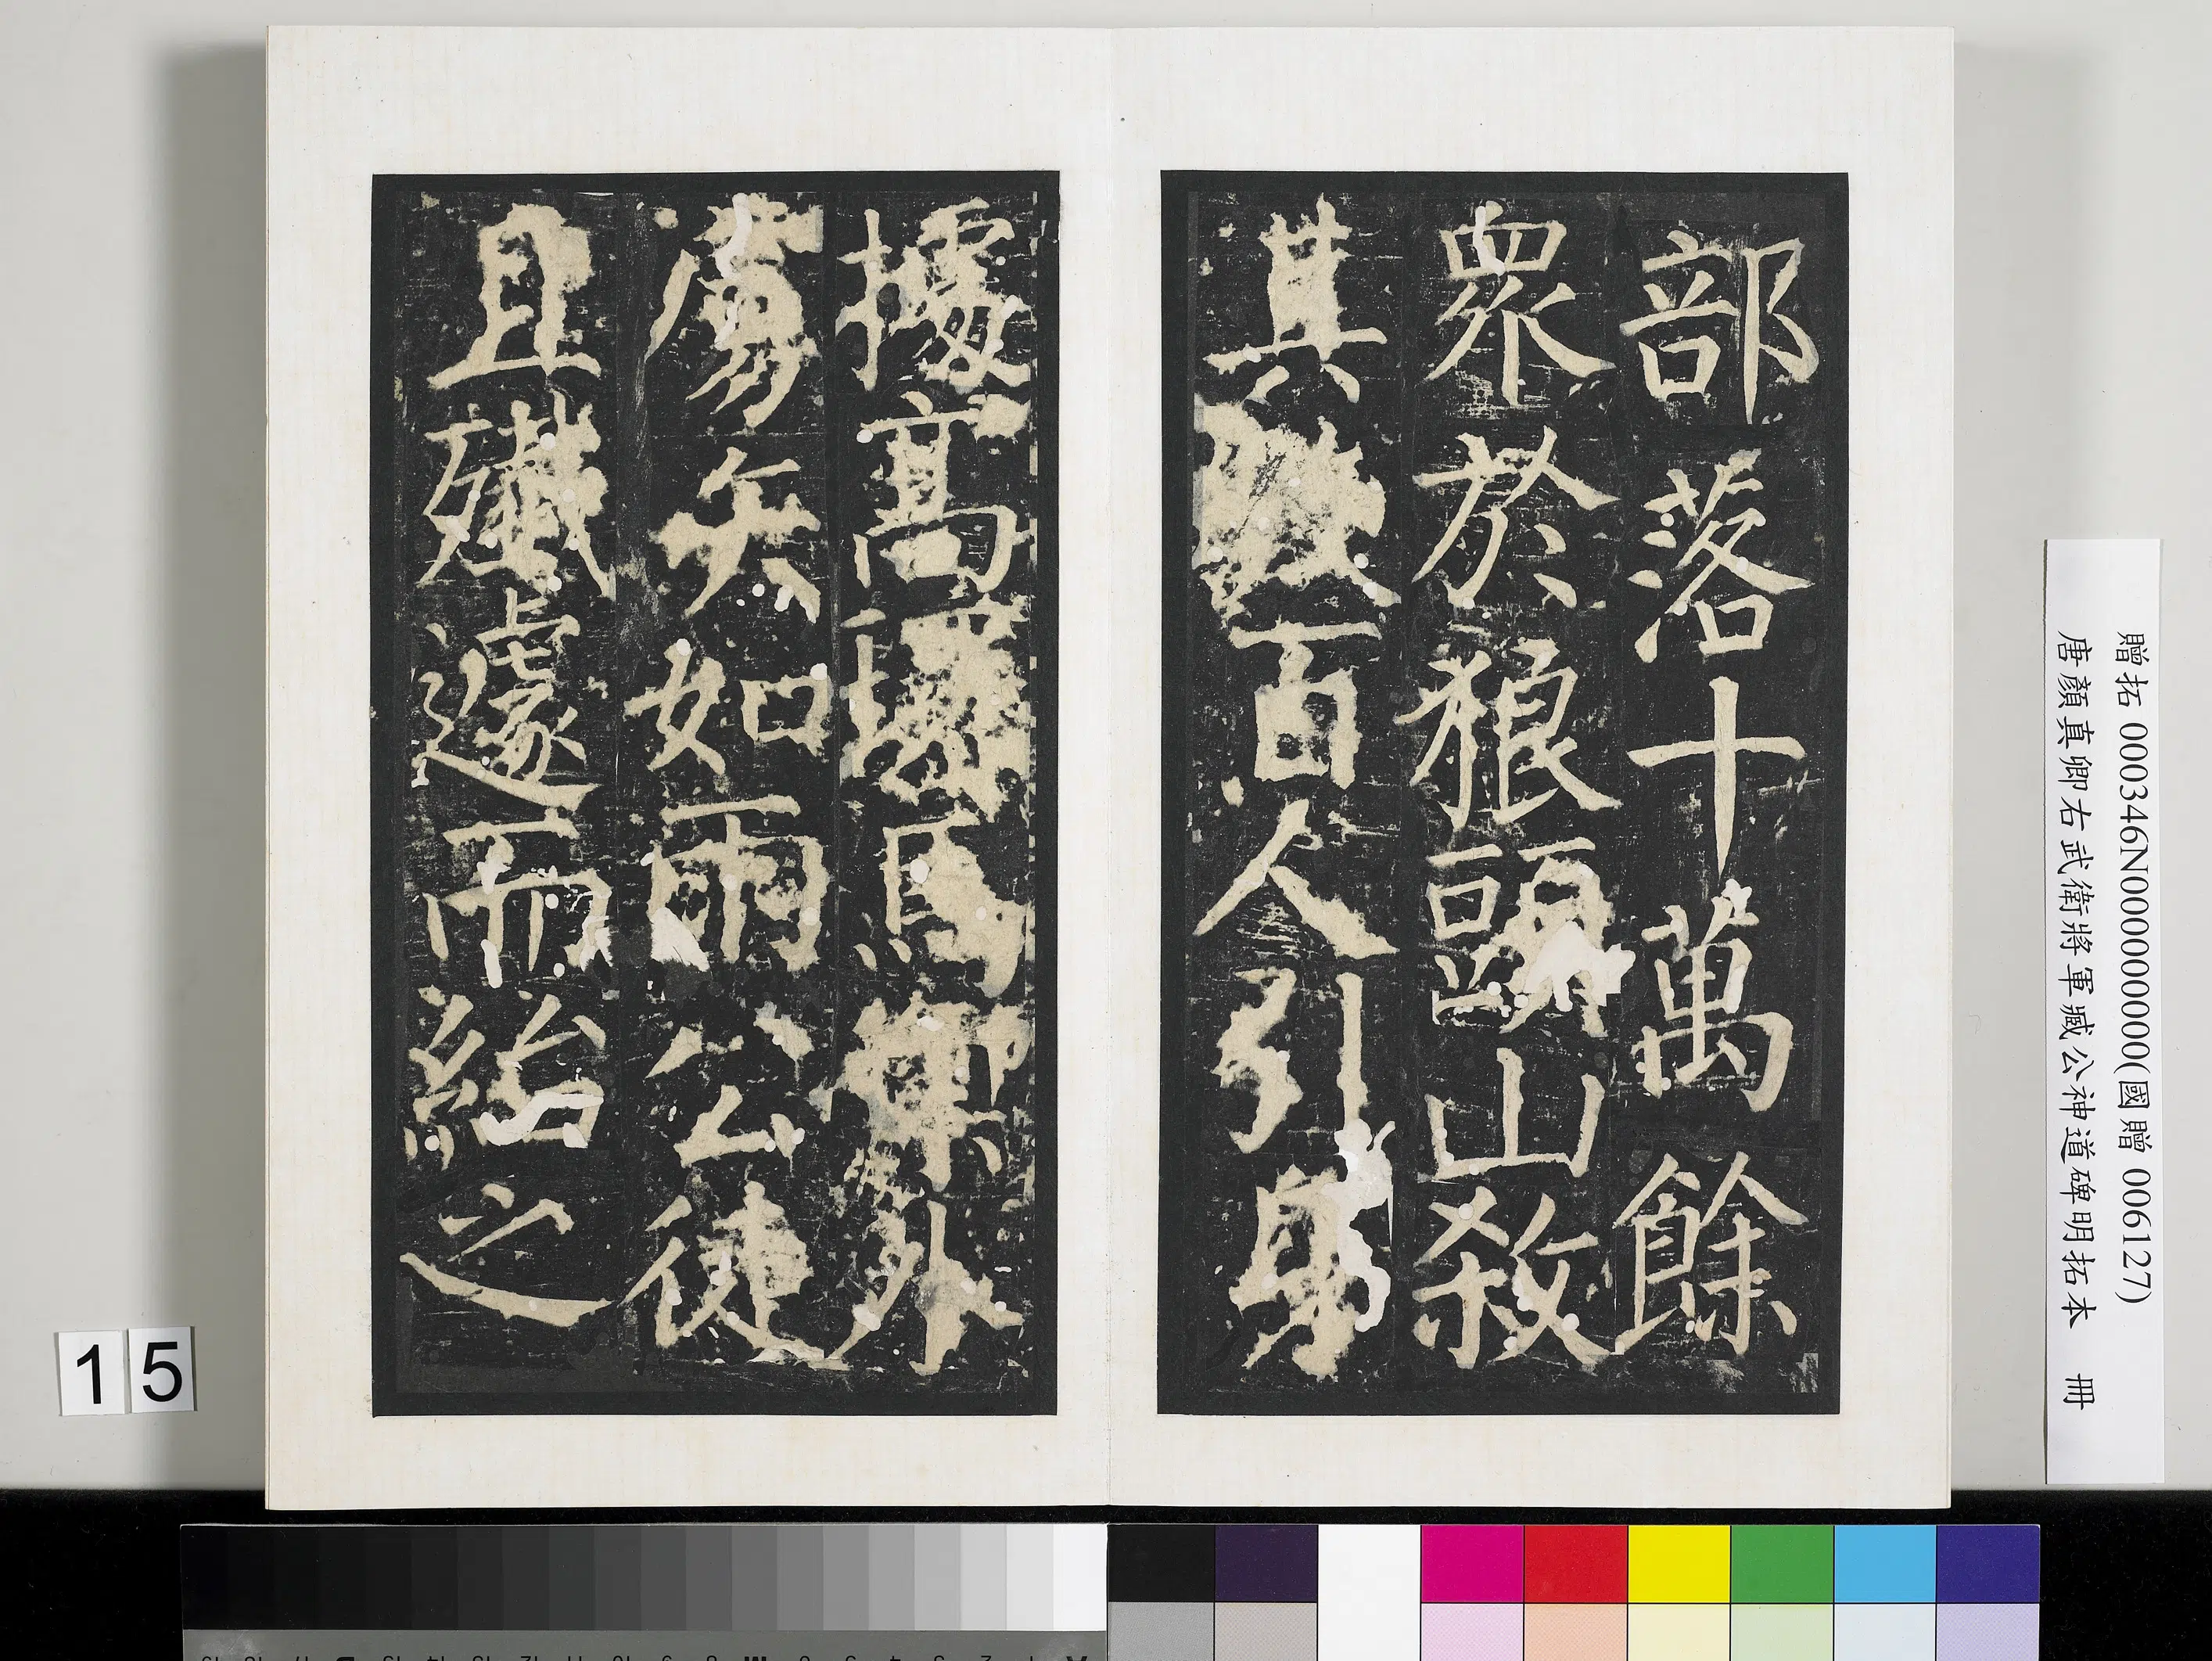 部落十萬餘
眾於狼頭山殺
其數百人引身
據高環馬禦外
虜矢如雨公徒
且殲遽而紿之
贈拓 000346N000000000(國贈 006127)
唐顏真卿右武衛將軍臧公神道碑明拓本 冊
15